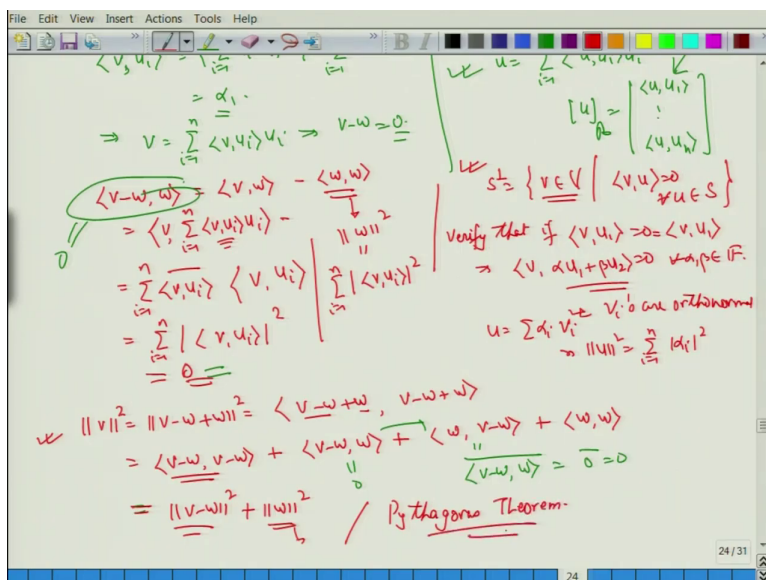 File Edit View Insert Actions Tools Help
= α₁.
⇒ v = Σᵢ₌₁ⁿ ⟨v,uᵢ⟩uᵢ ⇒ v-w = 0.
⟨v-w, w⟩ = ⟨v,w⟩ - ⟨w,w⟩
0
= ⟨v, Σᵢ₌₁ⁿ ⟨v,uᵢ⟩uᵢ⟩ -
||w||²
= Σᵢ₌₁ⁿ \overline{⟨v,uᵢ⟩} ⟨v,uᵢ⟩
= Σᵢ₌₁ⁿ |⟨v,uᵢ⟩|²
Σᵢ₌₁ⁿ |⟨v,uᵢ⟩|²
= 0
u = Σᵢ₌₁ⁿ ⟨u,uᵢ⟩uᵢ
[u] = [⟨u,u₁⟩ ⋮ ⟨u,uₙ⟩]
S^⊥ = {v∈V | ⟨v,u⟩=0 ∀u∈S}
Verify that if ⟨v,u₁⟩=0=⟨v,u₁⟩
⇒ ⟨v, αu₁+βu₂⟩=0 ∀α,β∈F.
u = Σαᵢvᵢ vᵢ's are orthonormal
⇒ ||u||² = Σᵢ₌₁ⁿ |αᵢ|²
||v||² = ||v-w+w||² = ⟨v-w+w, v-w+w⟩
= ⟨v-w, v-w⟩ + ⟨v-w, w⟩ + ⟨w, v-w⟩ + ⟨w,w⟩
0
\overline{⟨v-w, w⟩} = \overline{0} = 0
= ||v-w||² + ||w||² / Pythagoras Theorem.
24/31
24